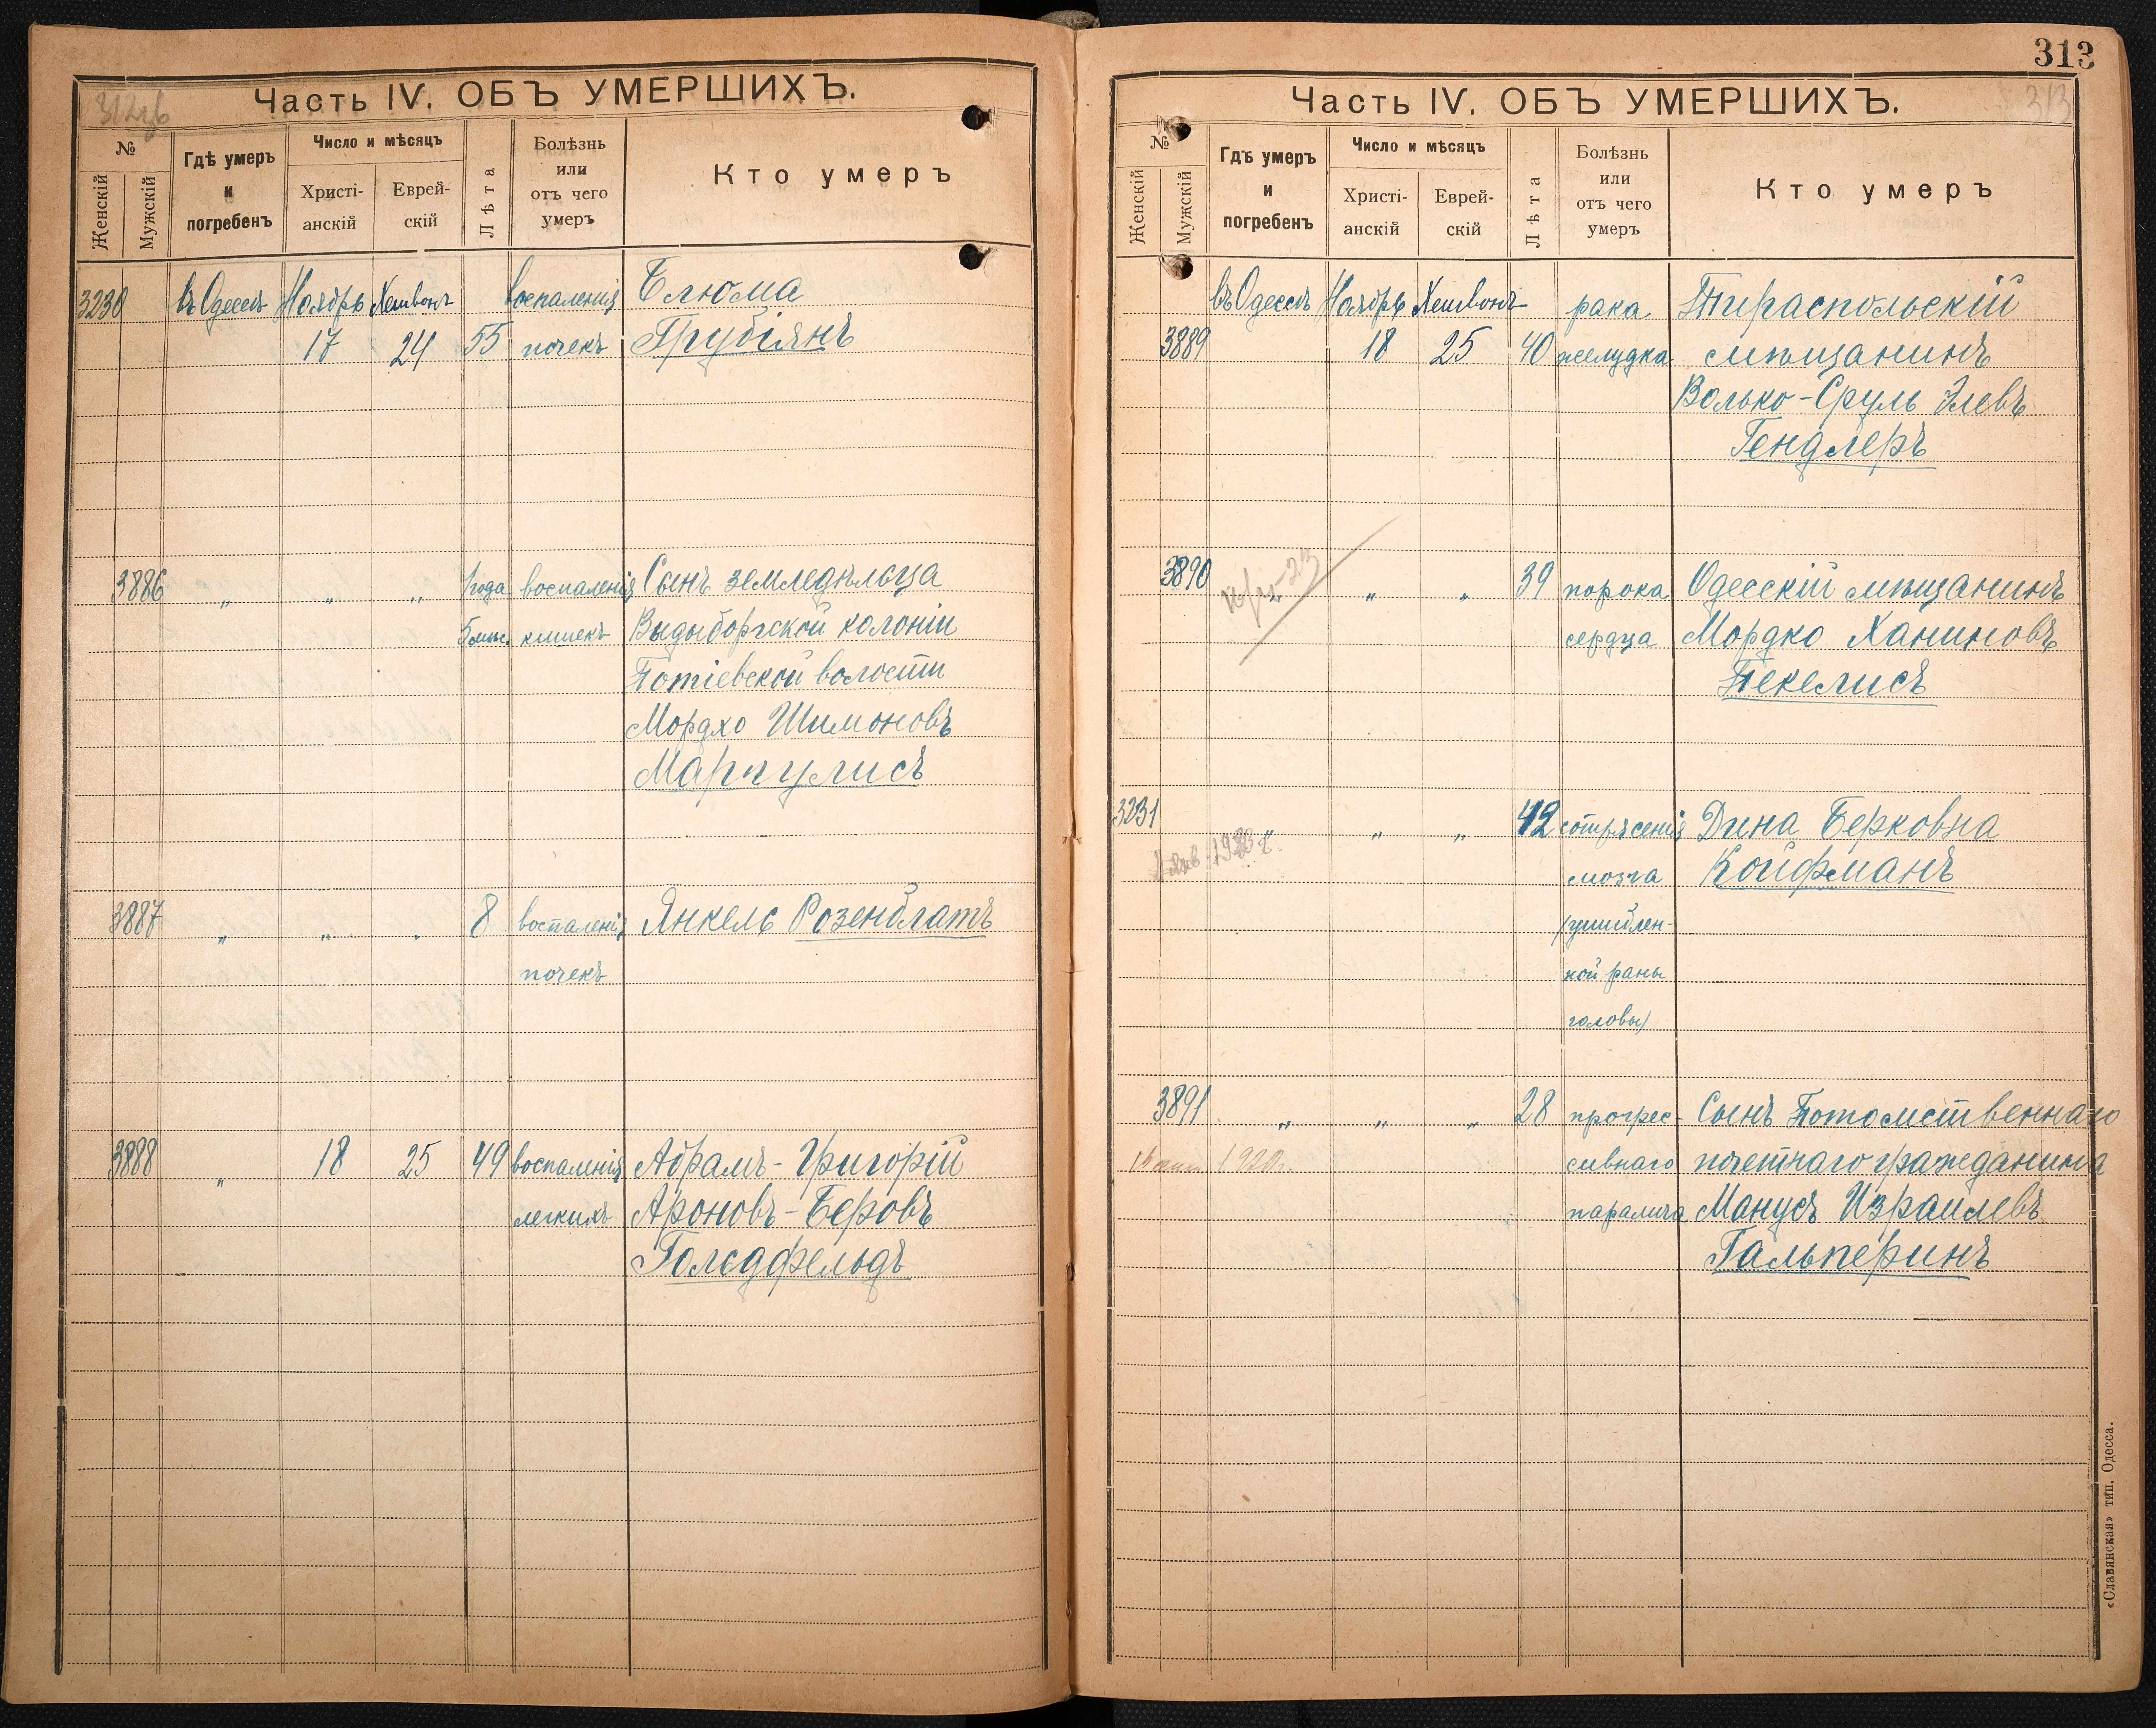 Часть IV. ОБЪ УМЕРШИХЪ.
№
Женскій
Мужскій
Гдѣ умеръ
и
погребенъ
Число и мѣсяцъ
Христі-
анскій
Еврей-
скій
Лѣта
Болѣзнь
или
отъ чего
умеръ
Кто умеръ
3230 въ Одессѣ Ноябрь Хешвонъ воспаленія Блюма
17 24 55 почекъ Грубіянъ
3886 " " " 1 года воспаленія Сынъ земледѣльца
5 мѣс. кишекъ Выдыборгской колоніи
Потіевской волости
Мордхо Шимоновъ
Маргулисъ
3887 " " " 8 воспаленія Янкель Розенблатъ
почекъ
3888 " 18 25 49 воспаленія Абрамъ-Григорій
легкихъ Ароновъ-Беровъ
Гольдфельдъ
313
Часть IV. ОБЪ УМЕРШИХЪ.
313
№
Женскій
Мужскій
Гдѣ умеръ
и
погребенъ
Число и мѣсяцъ
Христі-
анскій
Еврей-
скій
Лѣта
Болѣзнь
или
отъ чего
умеръ
Кто умеръ
въ Одессѣ Ноябрь Хешвонъ рака Тираспольскій
3889 18 25 40 желудка мѣщанинъ
Волько-Сруль Элевъ
Гендлеръ
3890 " " " 39 порока Одесскій мѣщанинъ
сердца Мордко Ханиновъ
Пекелисъ
3231 " " " 42 сотрясенія Дина Берковна
мозга Койфманъ
(ушиблен-
ной раны
головы)
3891 " " " 28 прогрес- Сынъ Потомственнаго
1920 сивнаго почетнаго гражданина
паралича Манусъ Израилевъ
Гальперинъ
«Славянская» тип. Одесса.